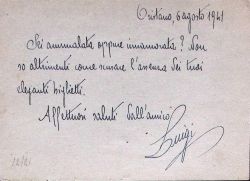 Oristano, 6 agosto 1941
Sei ammalata oppure innamorata? Non
so altrimenti come l'assenza dei tuoi
eleganti biglietti.
Affettuosi saluti dall'amico
Luigi